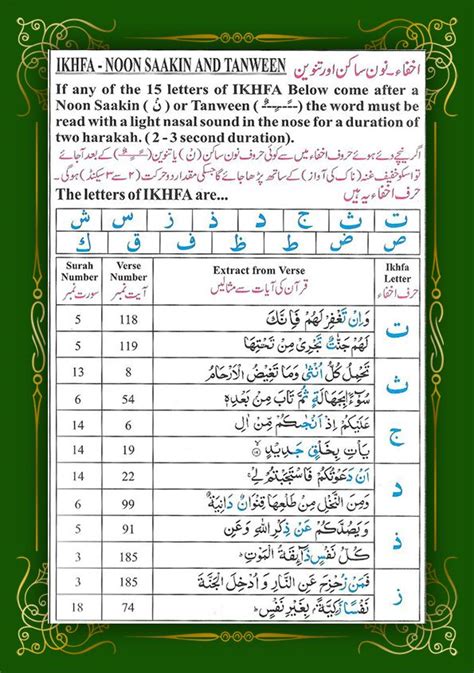 IKHFA - NOON SAAKIN AND TANWEEN اخفاء - نون ساکن اور تنوین
If any of the 15 letters of IKHFA Below come after a
Noon Saakin ( نْ ) or Tanween ( ـًـٍـٌ ) the word must be
read with a light nasal sound in the nose for a duration of
two harakah. (2 - 3 second duration).
اگر نیچے دئے ہوئے حروف اخفاء میں سے کوئی حرف نون ساکن (نْ) یا تنوین (ـًـٍـٌ) کے بعد آجائے
تو اسکو خفیف غنہ (ناک کی آواز) کے ساتھ پڑھا جائے گا جسکی مقدار دو حرکت (۲ سے ۳ سیکنڈ) ہوگی۔
The letters of IKHFA are... حرف اخفاء یہ ہیں
ت ث ج د ذ ز س ش
ص ض ط ظ ف ق ك
Surah Number سورت نمبر Verse Number آیت نمبر Extract from Verse قرآن کی آیات سے مثالیں Ikhfa Letter حرف اخفاء
5 118 وَاِنْ تَغْفِرْ لَهُمْ فَاِنَّكَ ت
5 119 لَهُمْ جَنّٰتٌ تَجْرِىْ مِنْ تَحْتِهَا
13 8 تَحْمِلُ كُلُّ اُنْثٰى وَمَا تَغِيْضُ الْاَرْحَامُ ث
6 54 سُوْٓءًۢا بِجَهَالَةٍ ثُمَّ تَابَ مِنْۢ بَعْدِهٖ
14 6 عَلَيْكُمْ اِذْ اَنْجٰىكُمْ مِّنْ اٰلِ ج
14 19 يَاْتِ بِخَلْقٍ جَدِيْدٍ
14 22 اَنْ دَعَوْتُكُمْ فَاسْتَجَبْتُمْ لِىْ د
6 99 وَمِنَ النَّخْلِ مِنْ طَلْعِهَا قِنْوَانٌ دَانِيَةٌ
5 91 وَيَصُدَّكُمْ عَنْ ذِكْرِ اللّٰهِ وَعَنِ ذ
3 185 كُلُّ نَفْسٍ ذَآئِقَةُ الْمَوْتِ
3 185 فَمَنْ زُحْزِحَ عَنِ النَّارِ وَاُدْخِلَ الْجَنَّةَ ز
18 74 نَفْسًا زَكِيَّةًۢ بِغَيْرِ نَفْسٍ